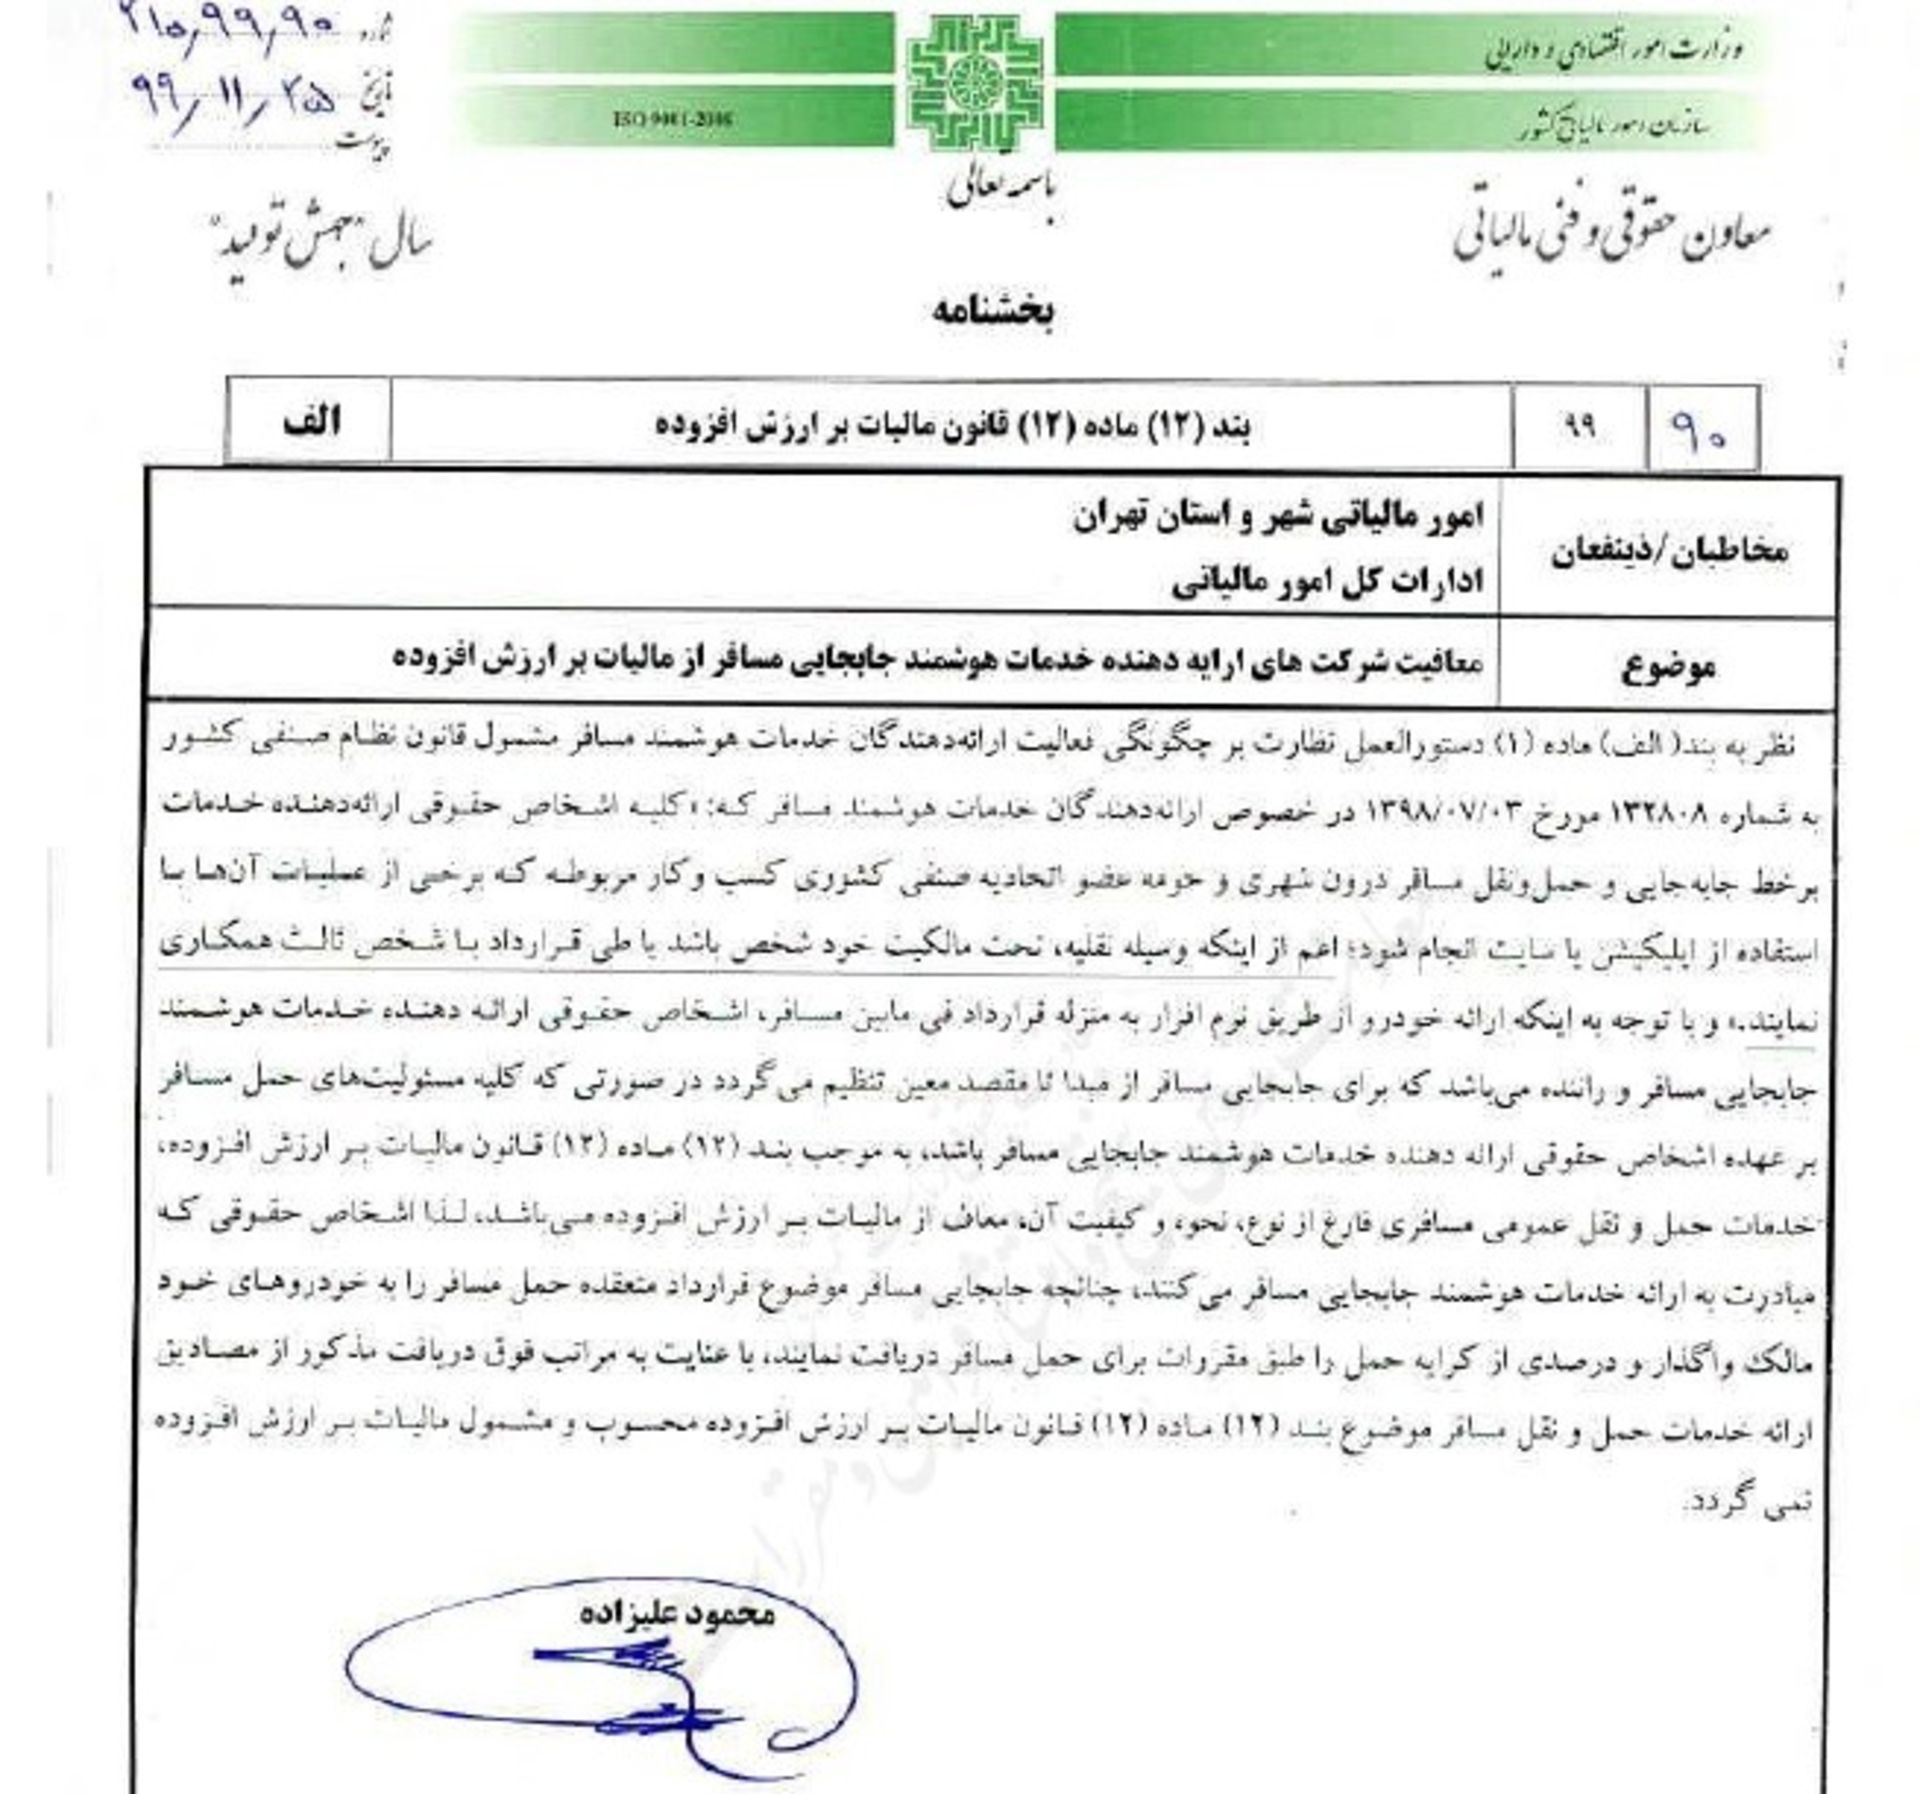 وزارت امور اقتصادی و دارایی
سازمان امور مالیاتی کشور
ISO 9001-2008
شماره ۲۱۰٫۹۹٫۹۰
تاریخ ۹۹٫۱۱٫۲۵
پیوست
باسمه تعالی
معاون حقوقی و فنی مالیاتی
سال "جهش تولید"
بخشنامه
۹۰ ۹۹ بند (۱۲) ماده (۱۲) قانون مالیات بر ارزش افزوده الف
مخاطبان/ذینفعان
امور مالیاتی شهر و استان تهران
ادارات کل امور مالیاتی
موضوع معافیت شرکت های ارایه دهنده خدمات هوشمند جابجایی مسافر از مالیات بر ارزش افزوده
نظر به بند( الف) ماده (۱) دستورالعمل نظارت بر چگونگی فعالیت ارائه‌دهندگان خدمات هوشمند مسافر مشمول قانون نظام صنفی کشور
به شماره ۱۳۲۸۰۸ مورخ ۱۳۹۸/۰۷/۰۳ در خصوص ارائه‌دهندگان خدمات هوشمند مسافر که: «کلیه اشخاص حقوقی ارائه‌دهنده خدمات
برخط جابه‌جایی و حمل‌ونقل مسافر درون شهری و حومه عضو اتحادیه صنفی کشوری کسب وکار مربوطه که برخی از عملیات آن‌ها با
استفاده از اپلیکیشن یا سایت انجام شود؛ اعم از اینکه وسیله نقلیه، تحت مالکیت خود شخص باشد یا طی قرارداد با شخص ثالث همکاری
نمایند.» و با توجه به اینکه ارائه خودرو از طریق نرم افزار به منزله قرارداد فی مابین مسافر، اشخاص حقوقی ارائه دهنده خدمات هوشمند
جابجایی مسافر و راننده می‌باشد که برای جابجایی مسافر از مبدا تا مقصد معین تنظیم می‌گردد در صورتی که کلیه مسئولیت‌های حمل مسافر
بر عهده اشخاص حقوقی ارائه دهنده خدمات هوشمند جابجایی مسافر باشد، به موجب بند (۱۲) ماده (۱۲) قانون مالیات بر ارزش افزوده،
خدمات حمل و نقل عمومی مسافری فارغ از نوع، نحوه و کیفیت آن، معاف از مالیات بر ارزش افزوده می‌باشد، لذا اشخاص حقوقی که
مبادرت به ارائه خدمات هوشمند جابجایی مسافر می‌کنند، چنانچه جابجایی مسافر موضوع قرارداد منعقده حمل مسافر را به خودروهای خود
مالک واگذار و درصدی از کرایه حمل را طبق مقررات برای حمل مسافر دریافت نمایند، با عنایت به مراتب فوق دریافت مذکور از مصادیق
ارائه خدمات حمل و نقل مسافر موضوع بند (۱۲) ماده (۱۲) قانون مالیات بر ارزش افزوده محسوب و مشمول مالیات بر ارزش افزوده
نمی گردد.
محمود علیزاده